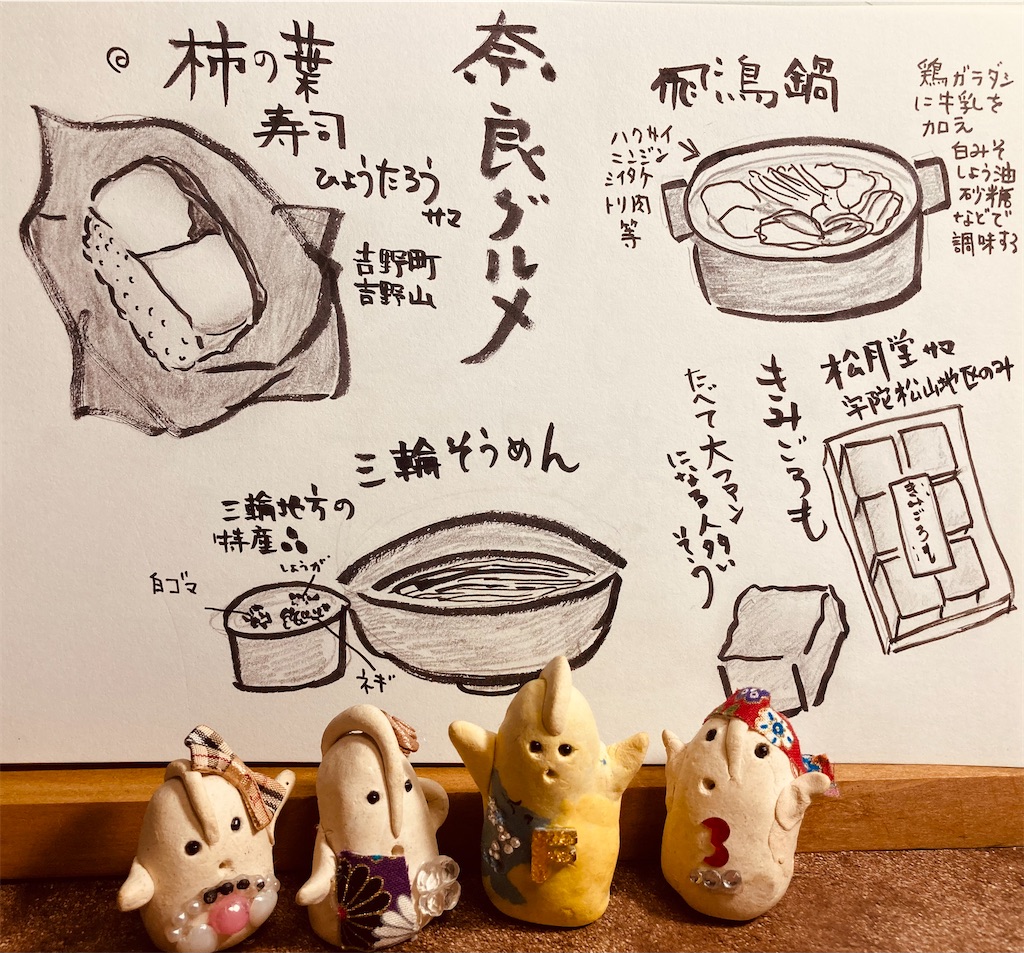 奈良グルメ
柿の葉
寿司
ひょうたろう
サマ
吉野町
吉野山
飛鳥鍋
ハクサイ
ニンジン
シイタケ
トリ肉
等
鶏ガラダシ
に牛乳を
加え
白みそ
しょう油
砂糖
などで
調味する
三輪そうめん
三輪地方の
特産品
しょうが
白ゴマ
ネギ
きみごろも
松月堂サマ
宇陀松山地区のみ
たべて大ファン
になる人タタい
そう
きみごろも